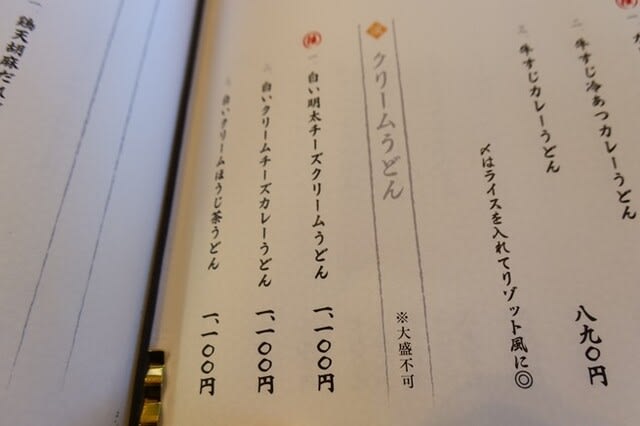 二 牛すじ冷あつカレーうどん 八九〇円
三 牛すじカレーうどん
〆はライスを入れてリゾット風に◎
クリームうどん ※大盛不可
一 白い明太チーズクリームうどん 一、一〇〇円
二 白いクリームチーズカレーうどん 一、一〇〇円
三 白いクリームほうじ茶うどん 一、一〇〇円
鶏天胡麻だ